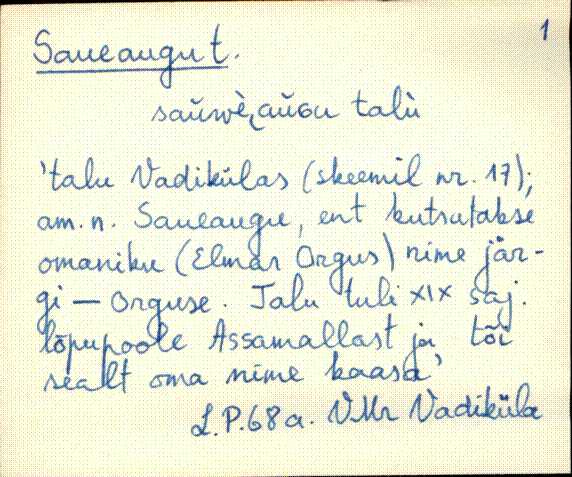 1
Saueaugu t.
saŭwè‿aŭɢu talù
'talu Vadikülas (skeemil nr. 17);
am. n. Saueaugu, ent kutsutakse
omaniku (Elmar Orgus) nime jär-
gi – Orguse. Talu tuli XIX saj.
lõpupoole Assamallast ja tõi
sealt oma nime kaasa'
L.P. 68 a. VMr Vadiküla